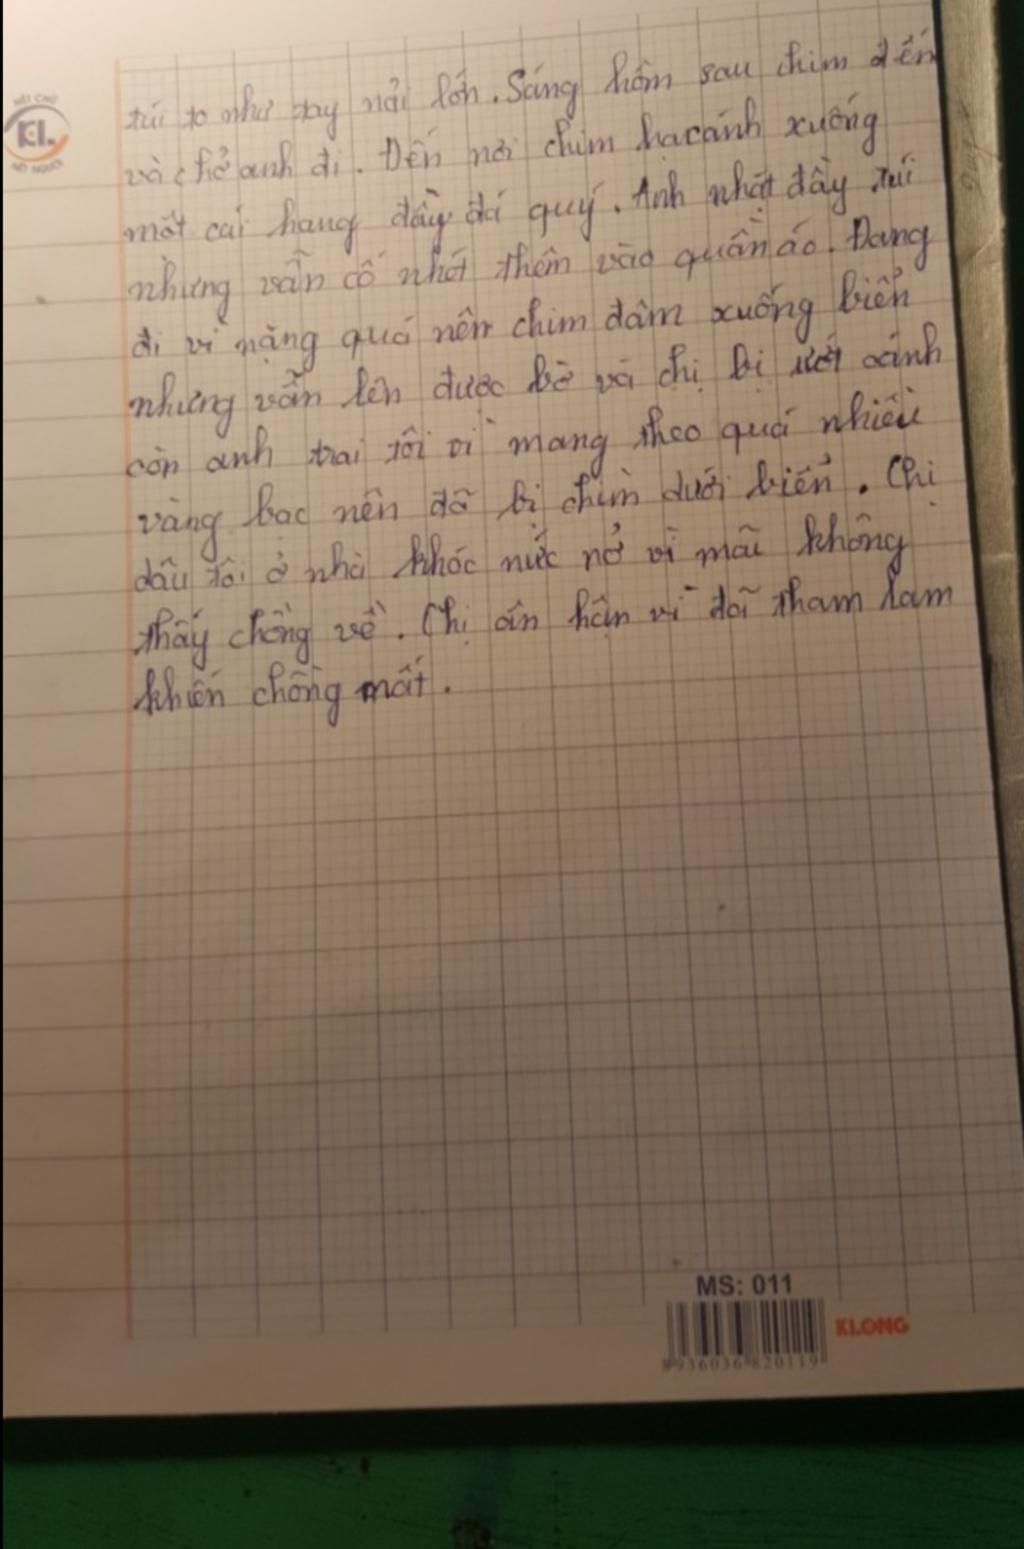 túi to như tay nải lớn. Sáng hôm sau chim đến
và chở anh đi. Đến nơi chim hạ cánh xuống
một cái hang đầy đá quý. Anh nhặt đầy túi
nhưng vẫn cố nhét thêm vào quần áo. Đang
đi vì nặng quá nên chim đâm xuống biển
nhưng vẫn lên được bờ và chị bị ướt cánh
còn anh trai tôi vì mang theo quá nhiều
vàng bạc nên đã bị chìm dưới biển. Chị
dâu tôi ở nhà khóc nức nở vì mãi không
thấy chồng về. Chị ân hận vì đã tham lam
khiến chồng mất.
KL
MS: 011
KLONG
8936036 820119